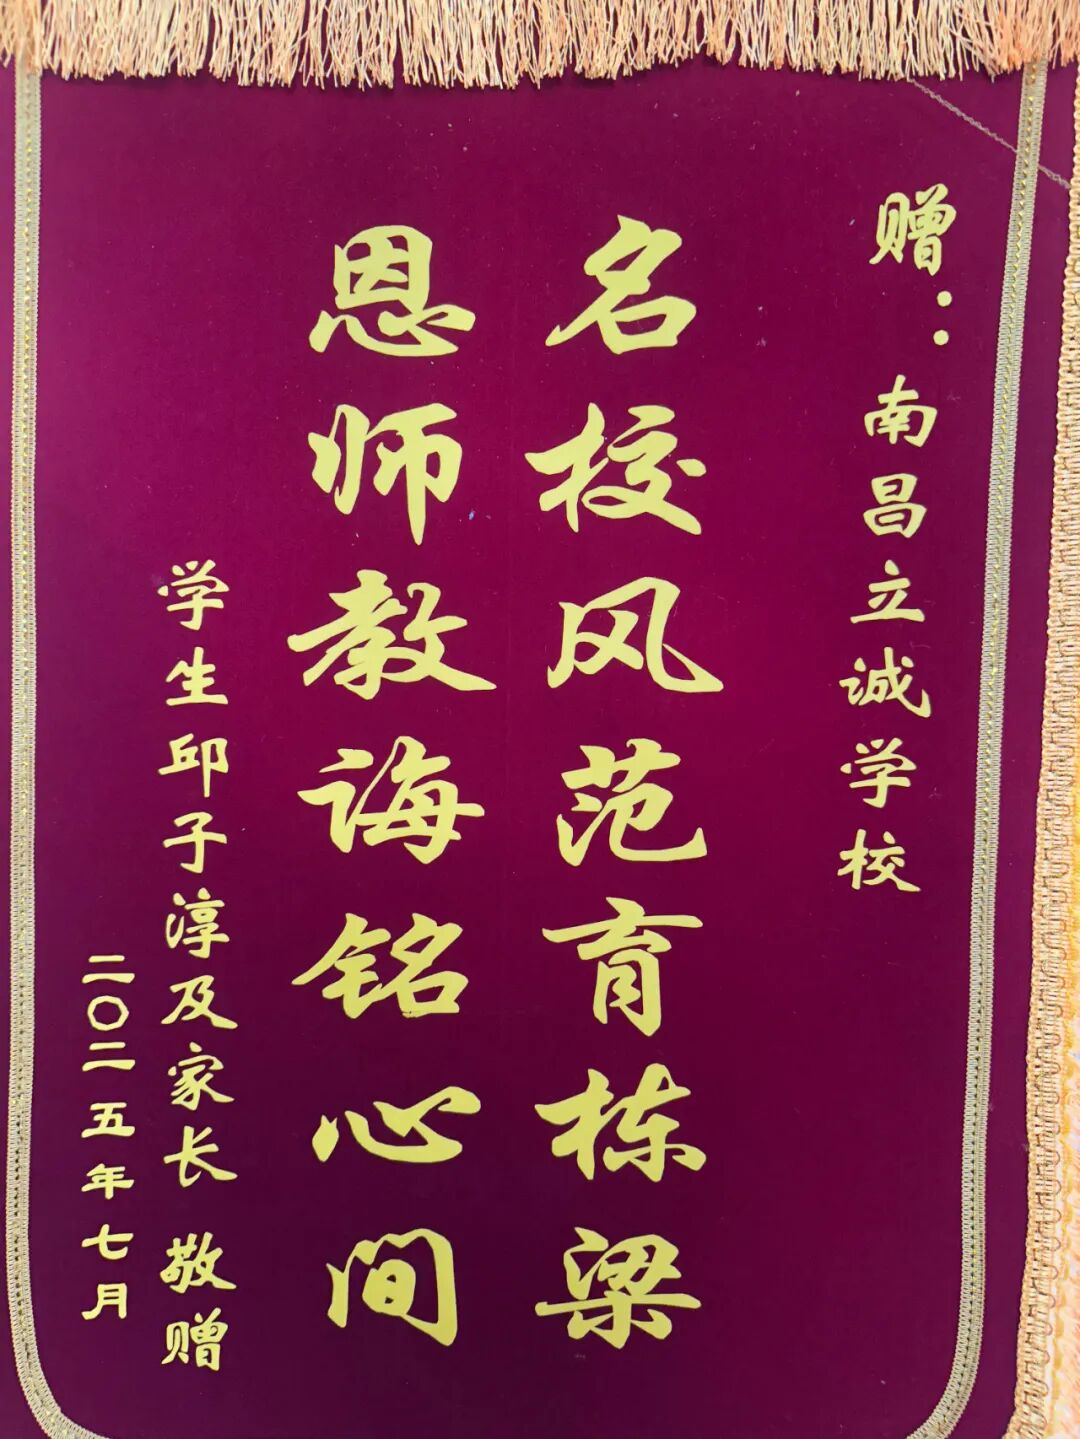 赠：南昌立诚学校
名校风范育栋梁
恩师教诲铭心间
学生邱子淳及家长 敬赠
二〇二五年七月